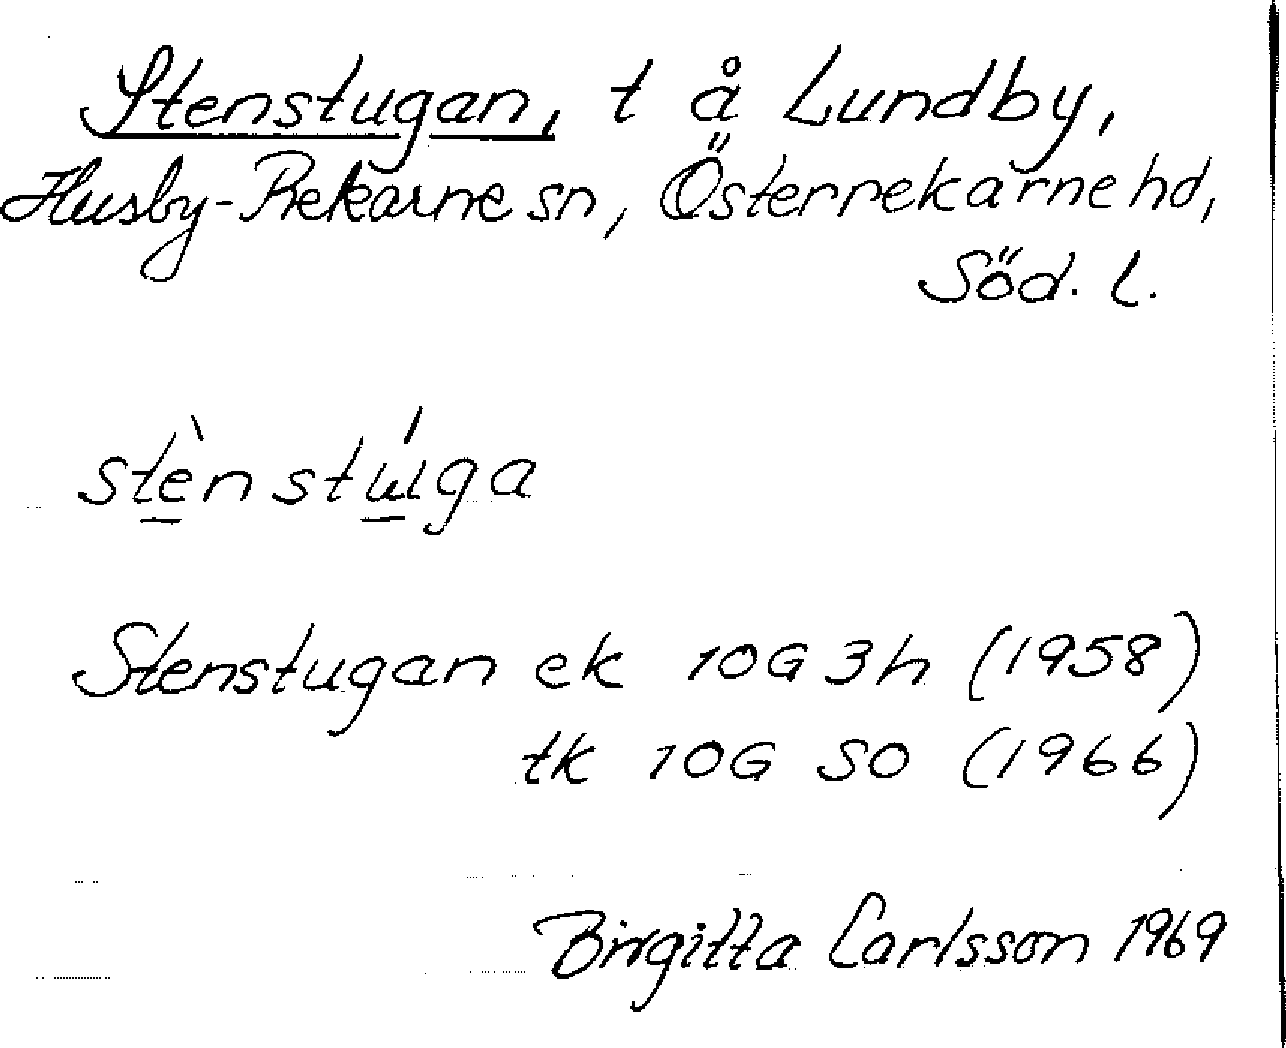 Stenstugan, t å Lundby,
Husby-Rekarne sn, Österrekarne hd,
Söd. l.
stènstúga
Stenstugan ek 10G 3h (1958)
tk 10G SO (1966)
Birgitta Carlsson 1969